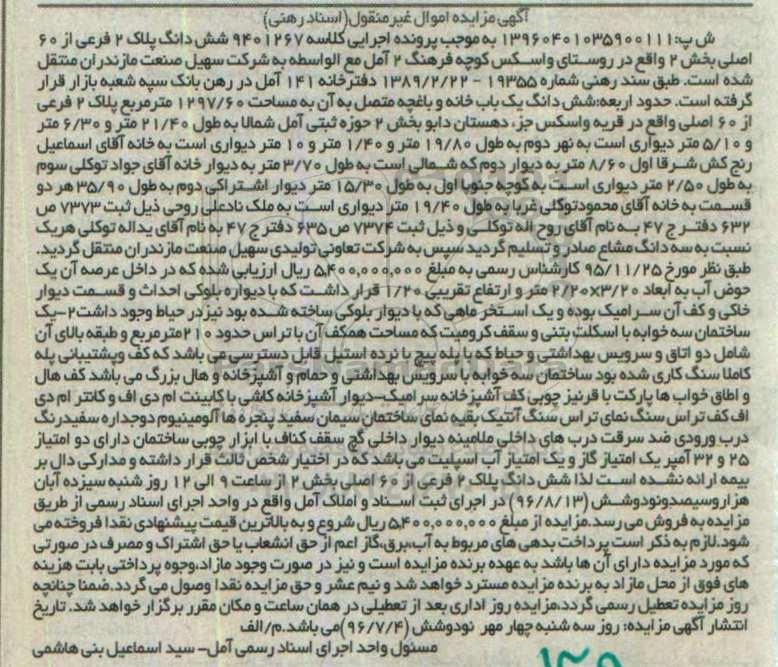 آگهی مزایده اموال غیرمنقول(اسناد رهنی)
ش پ:۱۳۹۶۰۴۰۱۰۳۵۹۰۰۱۱۱ به موجب پرونده اجرایی کلاسه ۹۴۰۱۲۶۷ شش دانگ پلاک ۲ فرعی از ۶۰
اصلی بخش ۲ واقع در روستای واسکس کوچه فرهنگ ۲ آمل مع الواسطه به شرکت سهیل صنعت مازندران منتقل
شده است. طبق سند رهنی شماره ۱۹۳۵۵ - ۱۳۸۹/۲/۲۲ دفترخانه ۱۴۱ آمل در رهن بانک سپه شعبه بازار قرار
گرفته است. حدود اربعه:شش دانگ یک باب خانه و باغچه متصل به آن به مساحت ۱۲۹۷/۶۰ مترمربع پلاک ۲ فرعی
از ۶۰ اصلی واقع در قریه واسکس جز، دهستان دابو بخش ۲ حوزه ثبتی آمل شمالا به طول ۲۱/۴۰ متر و ۶/۳۰ متر
و ۵/۱۰ متر دیواری است به نهر دوم به طول ۱۹/۸۰ متر و ۱/۴۰ متر و ۱۰ متر دیواری است به خانه آقای اسماعیل
رنج کش شرقا اول ۸/۶۰ متر به دیوار دوم که شمالی است به طول ۳/۷۰ متر به دیوار خانه آقای جواد توکلی سوم
به طول ۲/۵۰ متر دیواری است به کوچه جنوبا اول به طول ۱۵/۳۰ متر دیوار اشتراکی دوم به طول ۳۵/۹۰ هر دو
قسمت به خانه آقای محمودتوکلی دریا به طول ۱۹/۴۰ متر دیواری است به ملک نادعلی روحی ذیل ثبت ۷۳۷۳ ص
۶۳۲ دفتر ج ۴۷ به نام آقای روح اله توکلی و ذیل ثبت ۷۳۷۴ ص ۶۳۵ دفتر ج ۴۷ به نام آقای یداله توکلی هریک
نسبت به سه دانگ مشاع صادر و تسلیم گردید سپس به شرکت تعاونی تولیدی سهیل صنعت مازندران منتقل گردید.
طبق نظر مورخ ۹۵/۱۱/۲۵ کارشناس رسمی به مبلغ ۵,۴۰۰,۰۰۰,۰۰۰ ریال ارزیابی شده که در داخل عرصه آن یک
حوض آب به ابعاد ۲/۲۰×۳/۲۰ متر و ارتفاع تقریبی ۱/۲۰ قرار داشت که با دیواره بلوکی احداث و قسمت دیوار
خاکی و کف آن سرامیک بوده و یک استخر ماهی که با دیوار بلوکی ساخته شده بود نیز در حیاط وجود داشت۲-یک
ساختمان سه خوابه با اسکلت بتنی و سقف کرومیت که مساحت همکف آن با تراس حدود ۲۱۰مترمربع و طبقه بالای آن
شامل دو اتاق و سرویس بهداشتی و حیاط که با پله پیچ با نرده استیل قابل دسترسی می باشد که کف وپشتیبانی پله
کاملا سنگ کاری شده بود ساختمان سه خوابه با سرویس بهداشتی و حمام و آشپزخانه و هال بزرگ می باشد کف هال
و اطاق خواب ها پارکت با قرنیز چوبی کف آشپزخانه سرامیک-دیوار آشپزخانه کاشی با کابینت ام دی اف و کانتر ام دی
اف کف تراس سنگ نمای تراس سنگ آنتیک بقیه نمای ساختمان سیمان سفید پنجره ها آلومینیوم دوجداره سفیدرنگ
درب ورودی ضد سرقت درب های داخلی ملامینه دیوار داخلی گچ سقف کناف با ابزار چوبی ساختمان دارای دو امتیاز
۲۵ و ۳۲ آمپر یک امتیاز گاز و یک امتیاز آب اسپلیت می باشد که در اختیار شخص ثالث قرار داشته و مدارکی دال بر
بیمه ارائه نشده است لذا شش دانگ پلاک ۲ فرعی از ۶۰ اصلی بخش ۲ از ساعت ۹ الی ۱۲ روز شنبه سیزده آبان
هزاروسیصدونودوشش (۹۶/۸/۱۳) در اجرای ثبت اسناد و املاک آمل واقع در واحد اجرای اسناد رسمی از طریق
مزایده به فروش می رسد.مزایده از مبلغ ۵,۴۰۰,۰۰۰,۰۰۰ ریال شروع و به بالاترین قیمت پیشنهادی نقدا فروخته می
شود.لازم به ذکر است پرداخت بدهی های مربوط به آب،برق،گاز اعم از حق انشعاب یا حق اشتراک و مصرف در صورتی
که مورد مزایده دارای آن ها باشد به عهده برنده مزایده است و نیز در صورت وجود مازاد،وجوه پرداختی بابت هزینه
های فوق از محل مازاد به برنده مزایده مسترد خواهد شد و نیم عشر و حق مزایده نقدا وصول می گردد.ضمنا چنانچه
روز مزایده تعطیل رسمی گردد،مزایده روز اداری بعد از تعطیلی در همان ساعت و مکان مقرر برگزار خواهد شد. تاریخ
انتشار آگهی مزایده: روز سه شنبه چهار مهر نودوشش (۹۶/۷/۴)می باشد.م/الف
مسئول واحد اجرای اسناد رسمی آمل- سید اسماعیل بنی هاشمی